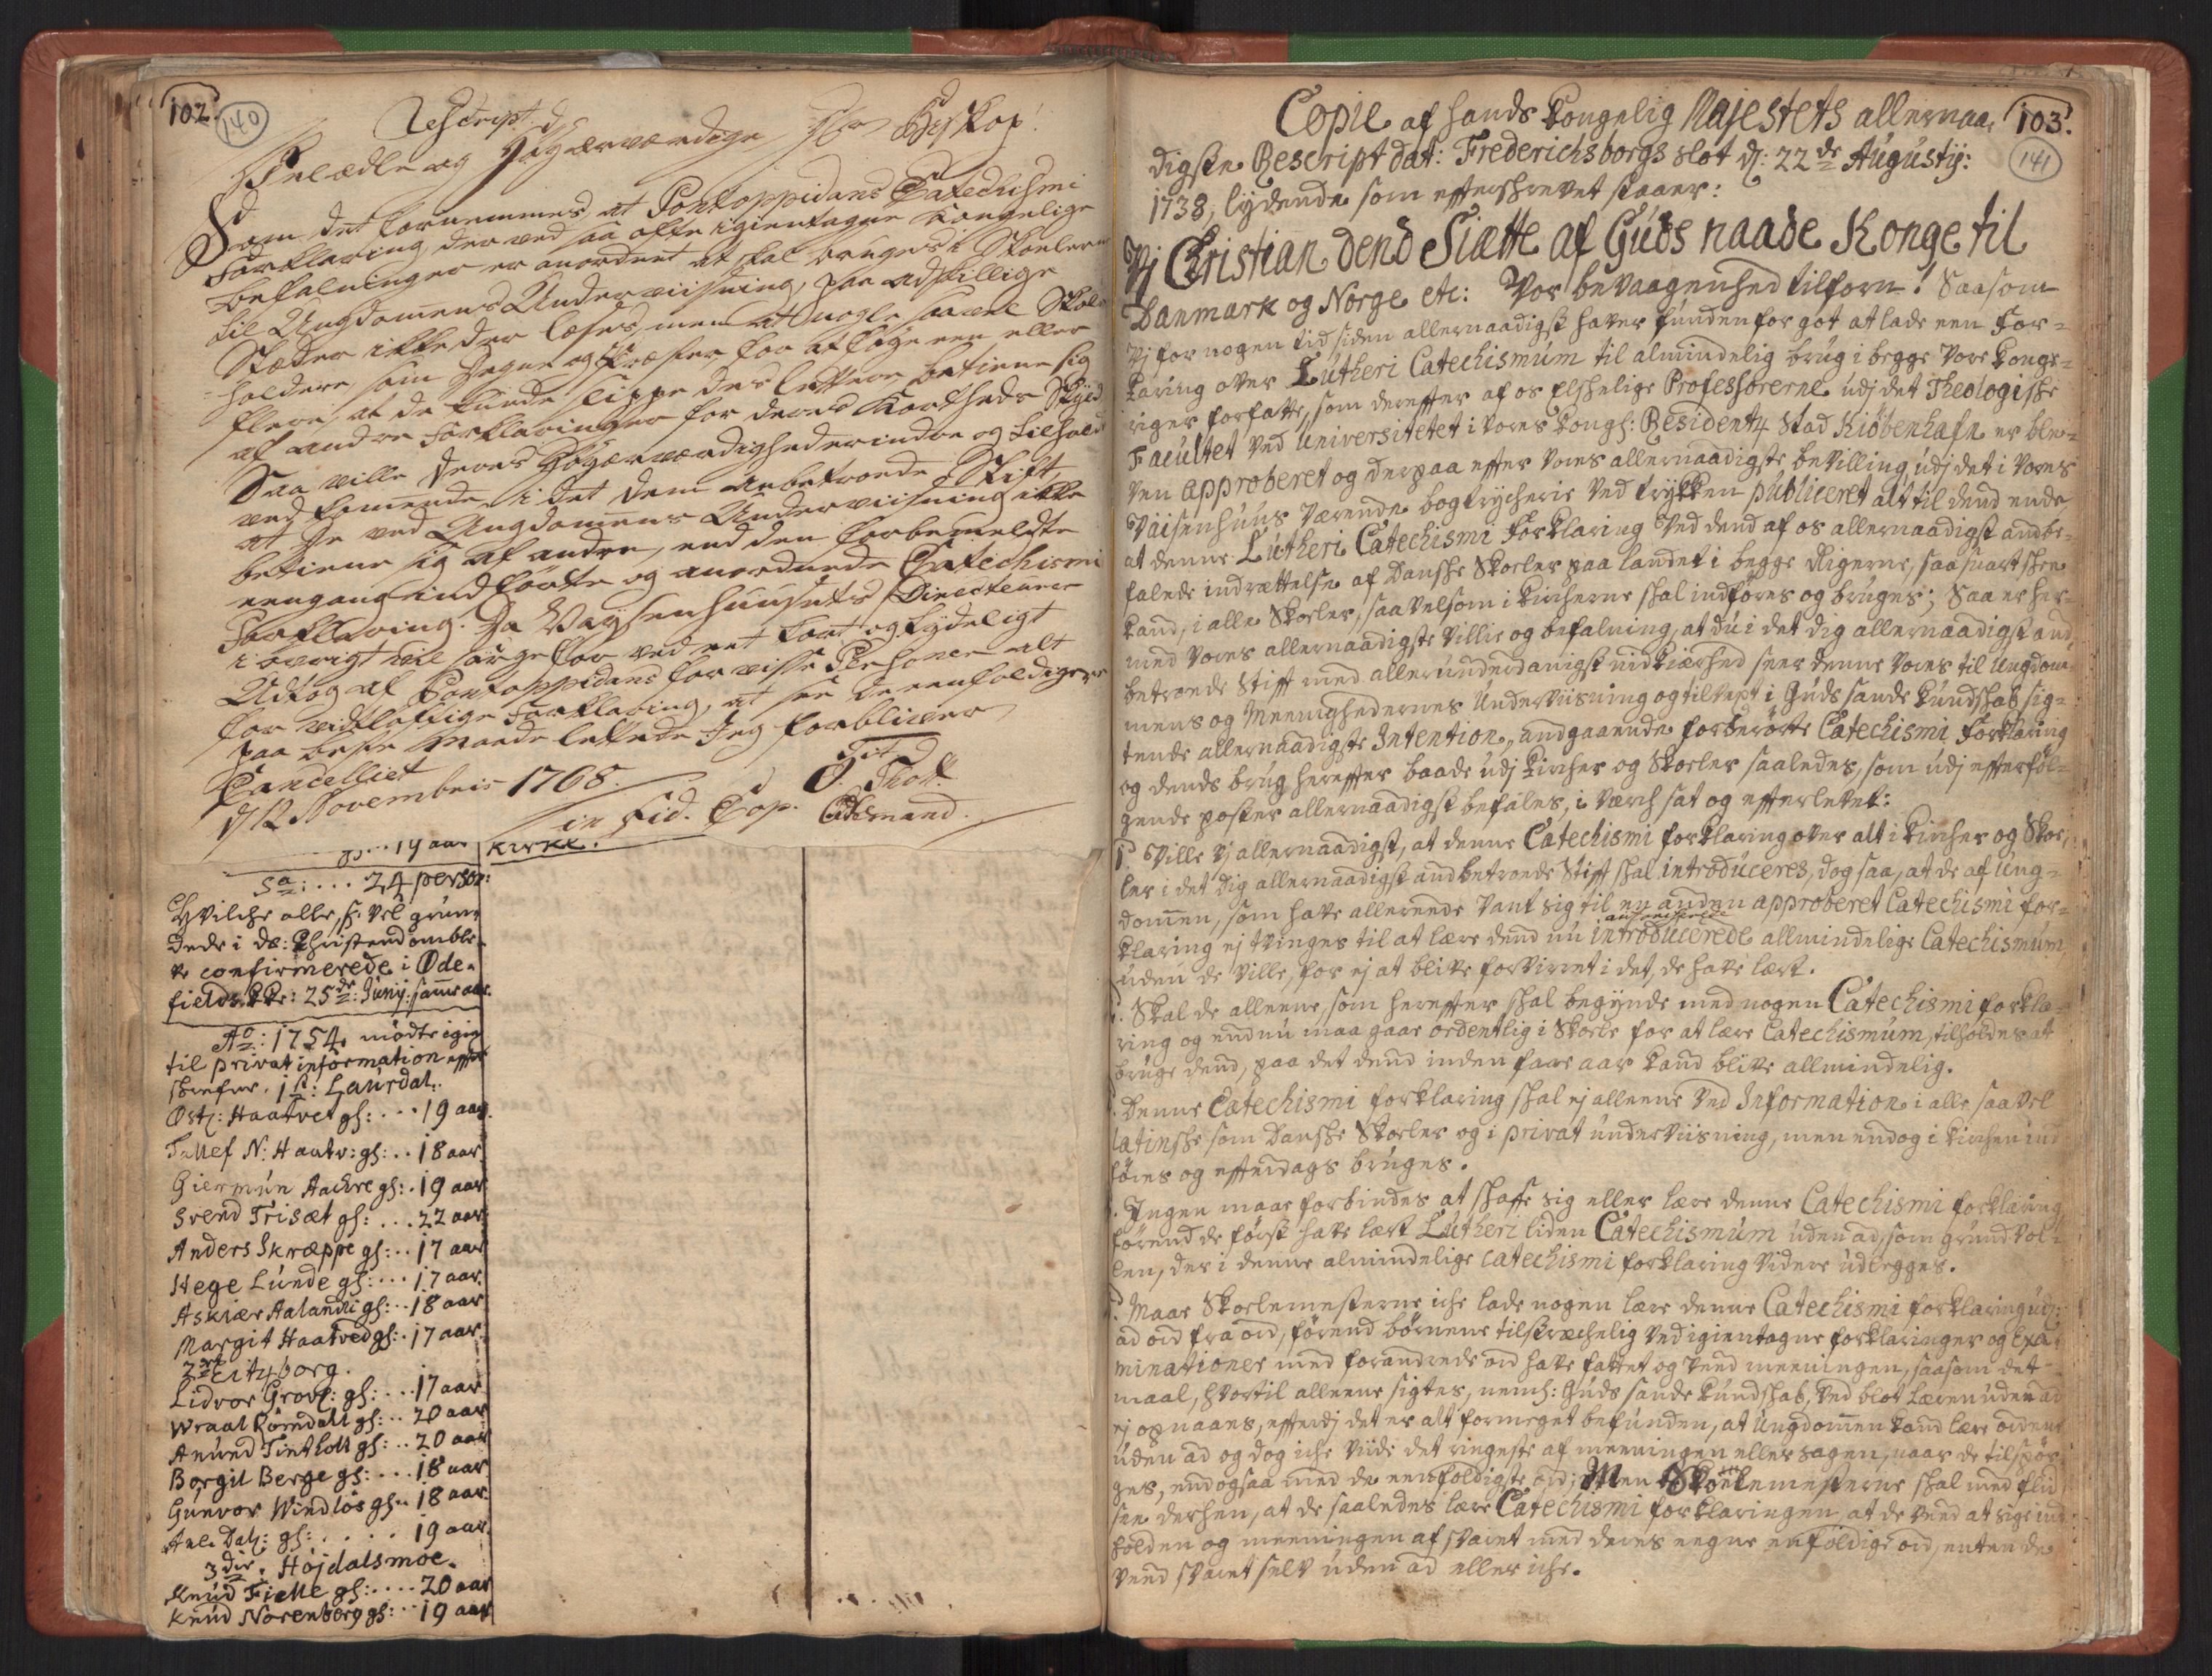 102.
140
Rescript.
Velædle og Høyærværdige Hr Biskop!
Som det fornemmes, at Pontoppidans Catechismi
Forklaring, der ved saa ofte igientagne Kongelige
befalninger er anordnet at skal bruges i Skolerne
til Ungdomens Underviisning, paa adskillige
Stæder ikke der læses, men at nogle saavel Skole-
holdere som Degne og Præster har at føye een eller
flere, at de kunde slippe des lettere betiene sig
af andre Forklaringer for deres Kortheds Skyld
Saa ville Deres Høyærværdighed erindre og tilholde
vedkomende, i det Dem anbetroede Stift,
at De ved Ungdomens Underviisning ikke
betiene sig af andre, end den forbemeldte
eengang indførte og anordnede Catechismi
Forklaring. Da Vaysenhuusets Directeurer
i øvrigt vil sørge for ved et kort og tydeligt
Udtog af Pontoppidans for visse Personer alt
for vidtløftige Forklaring, at see de eenfoldigere
paa beste Maade lettede Jeg forbliver
Cancelliet
d 12 Novembris 1768.
Tit
O. Thott.
in fid. Cop.
19 aar
Kirke.
Sa: ... 24 person:
Hvilche alle, s: vel grun-
dede i ds: Christendom ble-
ve confirmerede i Øde-
fields KKe: 25de Junij: samme aar.
Ao: 1754. mødte igien
til privat information effter
skrefne. 1st: Laurdal.
Østen: Haatvet gl: ... 19 aar.
Tallef N: Haatv: gl: .. 18 aar.
Giermun Aachre gl: . 19 aar
Svend Trisæt gl: ... 22 aar.
Anders Skræppe gl: .. 17 aar
Hege Lunde gl: ... 17 aar.
Askiær Aalandsli gl: .. 18 aar
Margit Haatved gl: . 17 aar.
2den Eitzborg.
Lidvor Grovl: gl: ... 17 aar
Wraal Rømdall gl: .. 20 aar
Anund Tintholt gl: .. 20 aar
Borgil Berge gl: ... 18 aar
Gunvor Windlös gl: .. 18 aar.
Anl. Dal: gl: .... 19 aar.
3die. Højdalsmoe.
Knud Fielle gl: .... 20 aar
Knud Norenberg gl: .. 19 aar
103.
141
Copie af hands Kongelig Majestets allernaa-
digste Rescript dat: Frederichsborgs slot d: 22de Augustij:
1738, lydende som effterschrevet staaer:
Vj Christian dend Siætte af Guds naade Konge til
Danmark og Norge etc: Vor bevaagenhed tilforn! Saasom
Vj for nogen tid siden allernaadigst haver funden for got at lade een For-
klaring over Lutheri Catechismum til almindelig brug i begge Vore Konge-
riger forfatte, som dereffter af os Elschelige Professorerne udj det Theologische
Facultet ved universitetet i Vores Kongl: Residentz Stad Kiøbenhafn er ble-
ven approberet og derpaa effter Vores allernaadigste bevilling udj det i Vores
Vaisenhuus værende bogtrycherie ved trykken publiceret alt til dend ende,
at denne Lutheri Catechismi Forklaring ved dend af os allernaadigst andbe-
falede indrættelse af Danske Skoeler paa landet i begge Rigerne, saa snart skee
kand, i alle Skoeler, saa velsom i Kircherne skal indføres og bruges; Saa er her-
med Vores allernaadigste Villie og befalning, at du i det dig allernaadigst and-
betroede Stifft med allerunderdanigst nidkiærhed seer denne Vores til Ungdom-
mens og Meenighedernes Underviisning og tilvext i Guds sande Kundskab sig-
tende allernaadigste Intention, andgaaende forberørte Catechismi Forklaring
og dends brug hereffter baade udj Kircher og Skoeler saaledes, som udj effterføl-
gende poster allernaadigst befales, i værch sat og effterlevet:
1. Ville Vj allernaadigst, at denne Catechismi forklaring over alt i Kircher og Skoe-
ler i det dig allernaadigst andbetroede Stifft skal introduceres, dog saa, at de af Ung-
dommen, som have allerede vant sig til en anden approberet Catechismi for-
klaring ej tvinges til at lære dend nu introducerede allmindelige Catechismum,
autoriserede
uden de ville, for ej at blive forvirret i det, de have lært.
Skal de alleene, som hereffter skal begynde med nogen Catechismi forkla-
ring og endnu maa gaae ordentlig i Skoele for at lære Catechismum, tilholdes at
bruge dend, paa det dend inden faae aar kand blive allmindelig.
Denne Catechismi forklaring skal ej alleene ved Information i alle, saa vel
latinske som Danske Skoeler og i privat underviisning, men endog i Kirchen ind-
føres og effterdags bruges.
Ingen maae forbindes at skaffe sig eller lære denne Catechismi forklaring,
førend de først have lært Lutheri liden Catechismum uden ad, som grundvol-
len, der i denne almindelige catechismi forklaring videre udlegges.
Maae Skoelemesterne iche lade nogen lære denne Catechismi forklaring ud-
ad ord fra ord, førend børnene tilstræchelig ved igientagne forklaringer og Exa-
minationer med forandrede ord have fattet og veed meeningen, saasom det
maal, hvortil alleene sigtes, neml: Guds sande kundskab, ved blot læren uden ad
ej opnaaes, effterdj det er alt formeget befunden, at Ungdommen kand lære ordene
uden ad og dog iche viide det ringeste af meeningen eller sagen, naar de tilspør-
ges, endogsaa med de eenfoldigste ord; Men Skoelemesterne skal med flid
see derhen, at de saaledes lære Catechismi forklaringen, at de veed at sige ind-
holden og meeningen af svaret med deres eegne enfoldige ord, enten de
veed svaret selv uden ad eller iche.